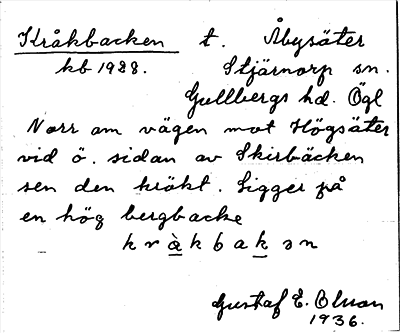 Kråkbacken t. Åbysäter
kb 1988. Stjärnorp sn.
Gullbergs hd. Ögl
Norr om vägen mot Högsäter
vid ö. sidan av Skirbäcken
sen den kräkt. Ligger på
en hög bergbacke
kràkbakən
Gustaf E. Olsson
1936.